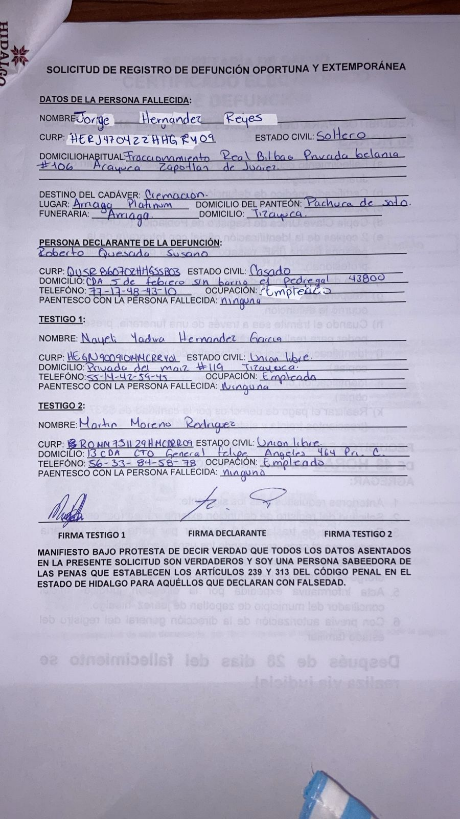 HIDALGO
SOLICITUD DE REGISTRO DE DEFUNCIÓN OPORTUNA Y EXTEMPORÁNEA
DATOS DE LA PERSONA FALLECIDA:
NOMBRE Jorge Hernandez Reyes
CURP: HERJ470422HHGRY09 ESTADO CIVIL: Soltero
DOMICILIOHABITUAL Fraccionamiento Real Bilbao Privada belania
#106 Acayuca Zapotlan de Juarez
DESTINO DEL CADÁVER: Cremacion
LUGAR: Arriaga Platinum DOMICILIO DEL PANTEÓN: Pachuca de soto.
FUNERARIA: Arriaga DOMICILIO: Tizayuca.
PERSONA DECLARANTE DE LA DEFUNCIÓN:
Roberto Quesada Susano
CURP: ESTADO CIVIL: Casado
DOMICILIO: CDA 5 de febrero sn barrio el pedregal 43800
TELEFÓNO: 77-17-48-43-10 OCUPACIÓN: Empleado
PAENTESCO CON LA PERSONA FALLECIDA: ninguno
TESTIGO 1:
NOMBRE: Nayeli Yadira Hernandez Garcia
CURP: ESTADO CIVIL: Union libre.
DOMICILIO: Privada del maiz #119 Tizayuca.
TELEFÓNO: 55-14-42-59-45 OCUPACIÓN: Empleada
PAENTESCO CON LA PERSONA FALLECIDA: Ninguna
TESTIGO 2:
NOMBRE: Martin Moreno Rodriguez
CURP: ESTADO CIVIL: Union libre
DOMICILIO: 13 CDA CTO General Felipe Angeles 464 Pr. C.
TELEFÓNO: 56-33-84-58-78 OCUPACIÓN: Empleado
PAENTESCO CON LA PERSONA FALLECIDA: ninguno
FIRMA TESTIGO 1 FIRMA DECLARANTE FIRMA TESTIGO 2
MANIFIESTO BAJO PROTESTA DE DECIR VERDAD QUE TODOS LOS DATOS ASENTADOS
EN LA PRESENTE SOLICITUD SON VERDADEROS Y SOY UNA PERSONA SABEEDORA DE
LAS PENAS QUE ESTABLECEN LOS ARTÍCULOS 239 Y 313 DEL CÓDIGO PENAL EN EL
ESTADO DE HIDALGO PARA AQUÉLLOS QUE DECLARAN CON FALSEDAD.